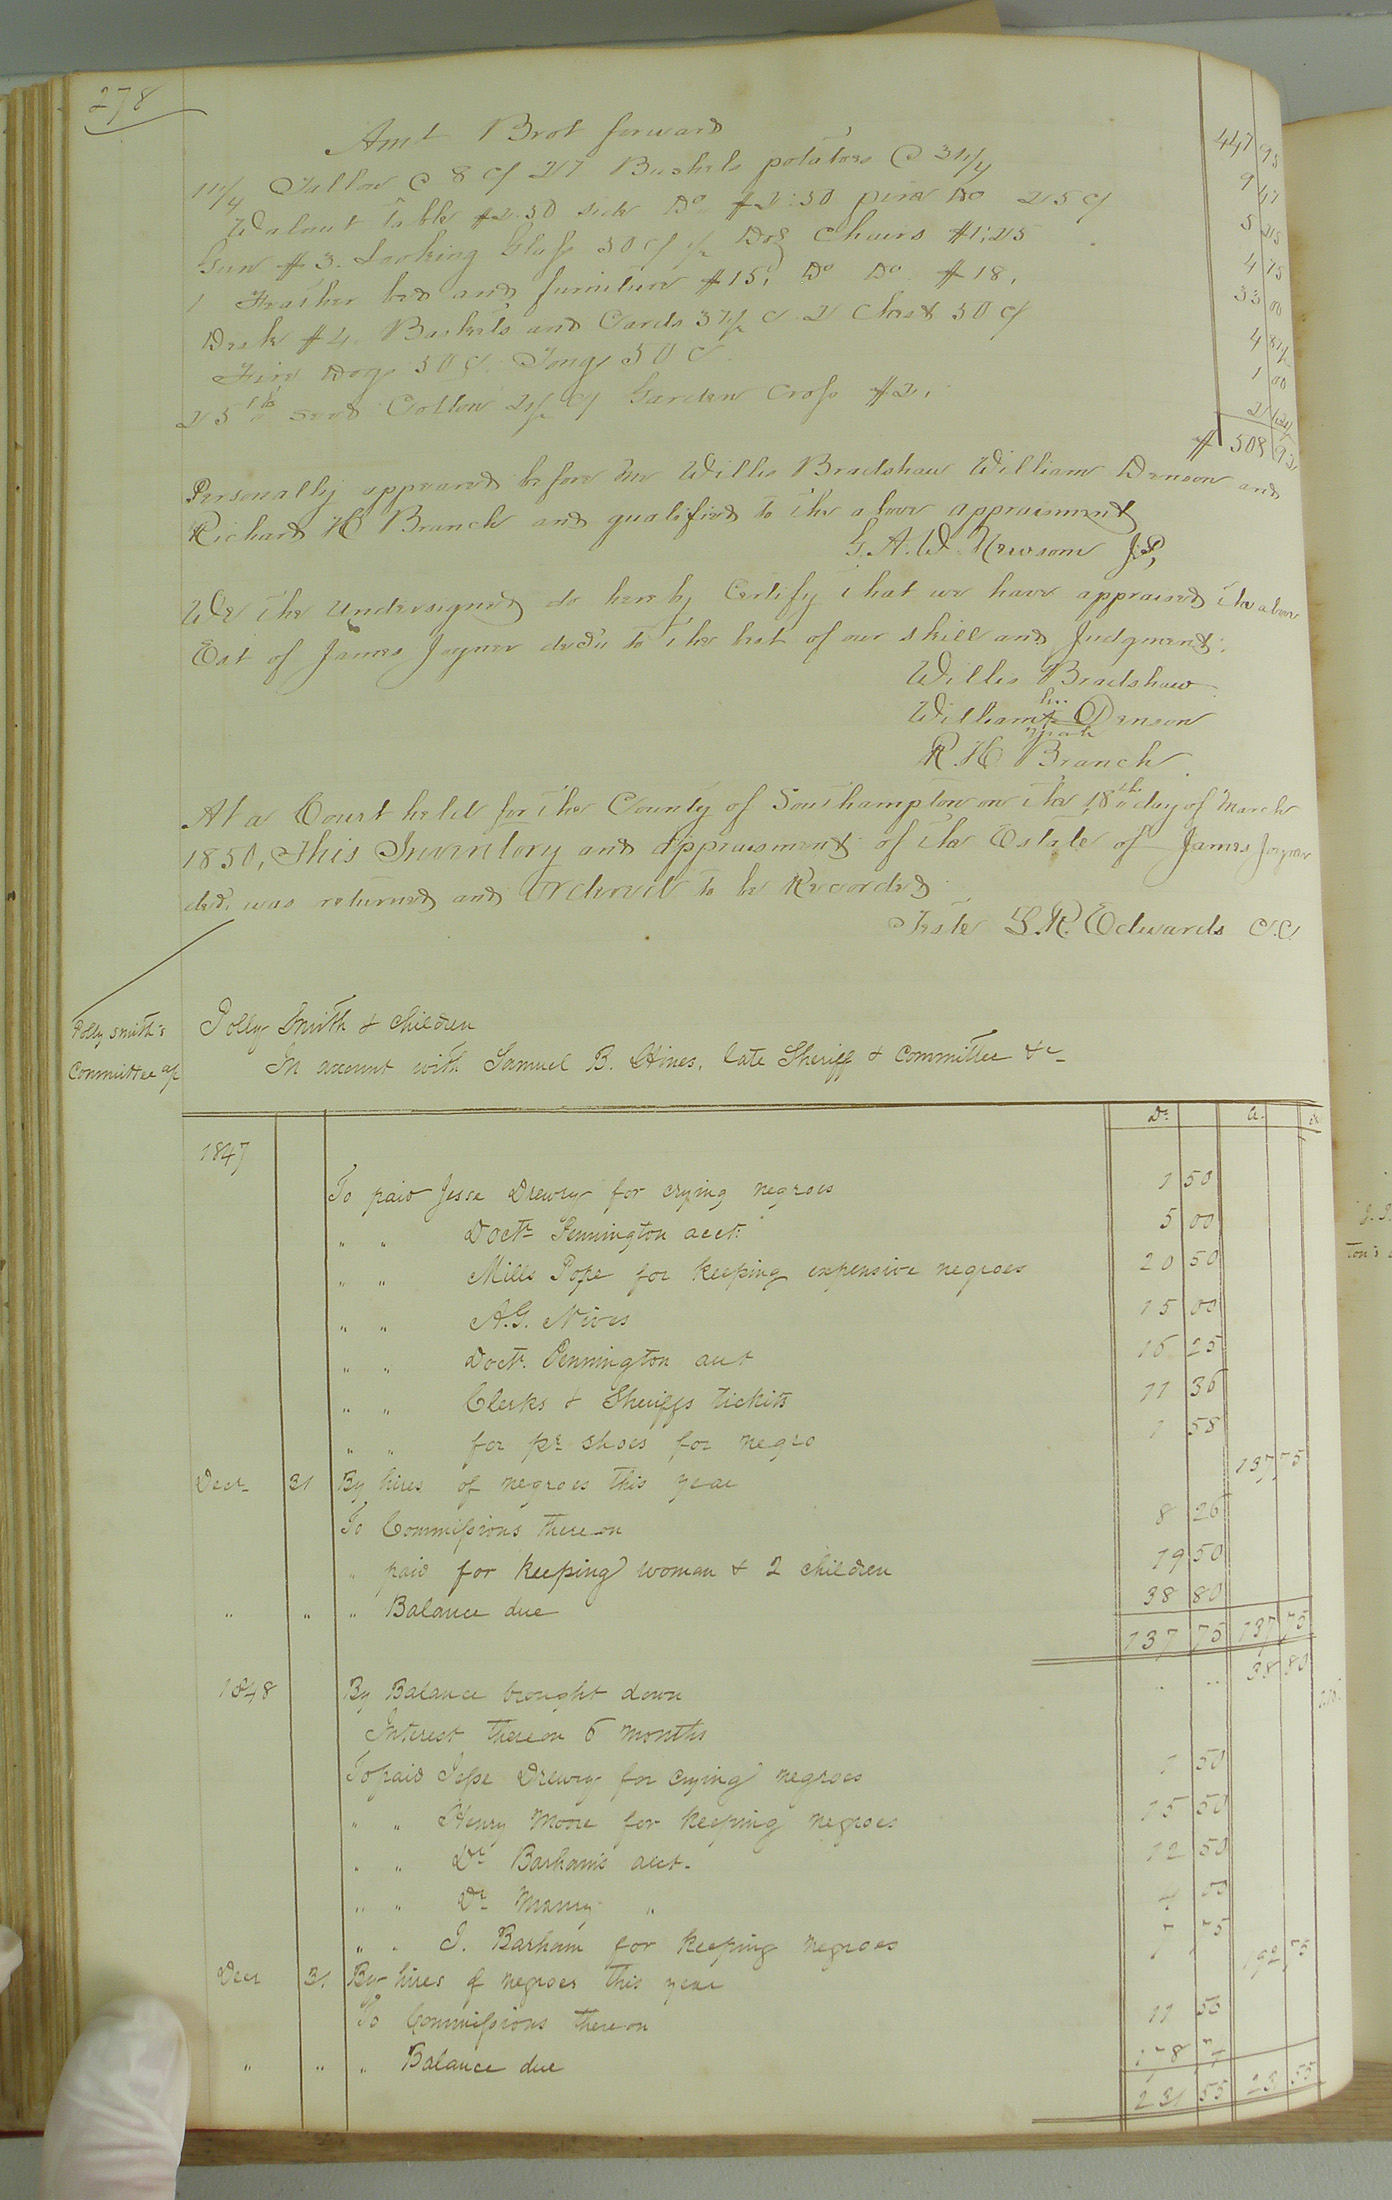 278
Amt Brot forward 447 98
11 1/4 Tallow @ 8 c/ 27 Bushels potatoes @ 31 1/4 9 47
Walnut Table $2.50 side Do. $2:50 pine Do 25 c/ 5 25
Gun $3. Looking Glass 50 c/ 1/2 Doz chairs $1;25 4 75
1 Feather bed and furniture $15; Do Do. $18, 33 00
Desk $4. Baskets and Cards 37 1/2 c 2 Chest 50 c/ 4 87 1/2
Fire Dogs 50 c/. Tongs 50 c. 1 00
25 lb seed Cotton 2 1/2 c/ Garden Cross $2, 2
$ 508 93
Personally appeared before me Willis Bradshaw William Denson and
Richard H Branch and qualified to the above appraisment
G. A. W. Newsom J.P,
We the undersigned do hereby Certify that we have appraised the above
Est of James Joyner decd to the best of our skill and Judgment.
Willis Bradshaw
his
William + Denson
mark
R. H. Branch
At a Court held for the County of Southampton on the 18th day of March
1850, This Inventory and appraisment of the Estate of James Joyner
decd. was returned and Ordered to be Recorded
Teste L. R. Edwards C.C.
Polly Smith's
Committee a/c
Polly Smith & children
In account with Samuel B. Hines, late Sheriff & Committee &c
Dr. Cr.
1847
To paid Jesse Drewry for crying negroes 1 50
" " Doctr Pennington acct. 5 00
" " Mills Pope for keeping expensive negroes 20 50
" " A.G. 15 00
" " Doctr. Pennington acct 16 25
" " Clerks & Sheriffs tickets 11 36
" " for pr shoes for negro 1 58
Decr 31 By hires of negroes this year 137 75
To Commissions thereon 8 26
" paid for keeping woman & 2 children 19 50
" " " Balance due 38 80
137 75 137 75
1848 By Balance brought down " " 38 80
Interest thereon 6 months
To paid Jesse Drewry for crying negroes 1 50
" " Henry Moore for keeping negroes 15 50
" " Dr Barham's acct. 12 50
" " Dr " 4 00
" " J. Barham for keeping negroes 7 75
Decr 31 By hires of negroes this year 192 75
To Commissions thereon 11 55
" " " Balance due
231 55 231 55